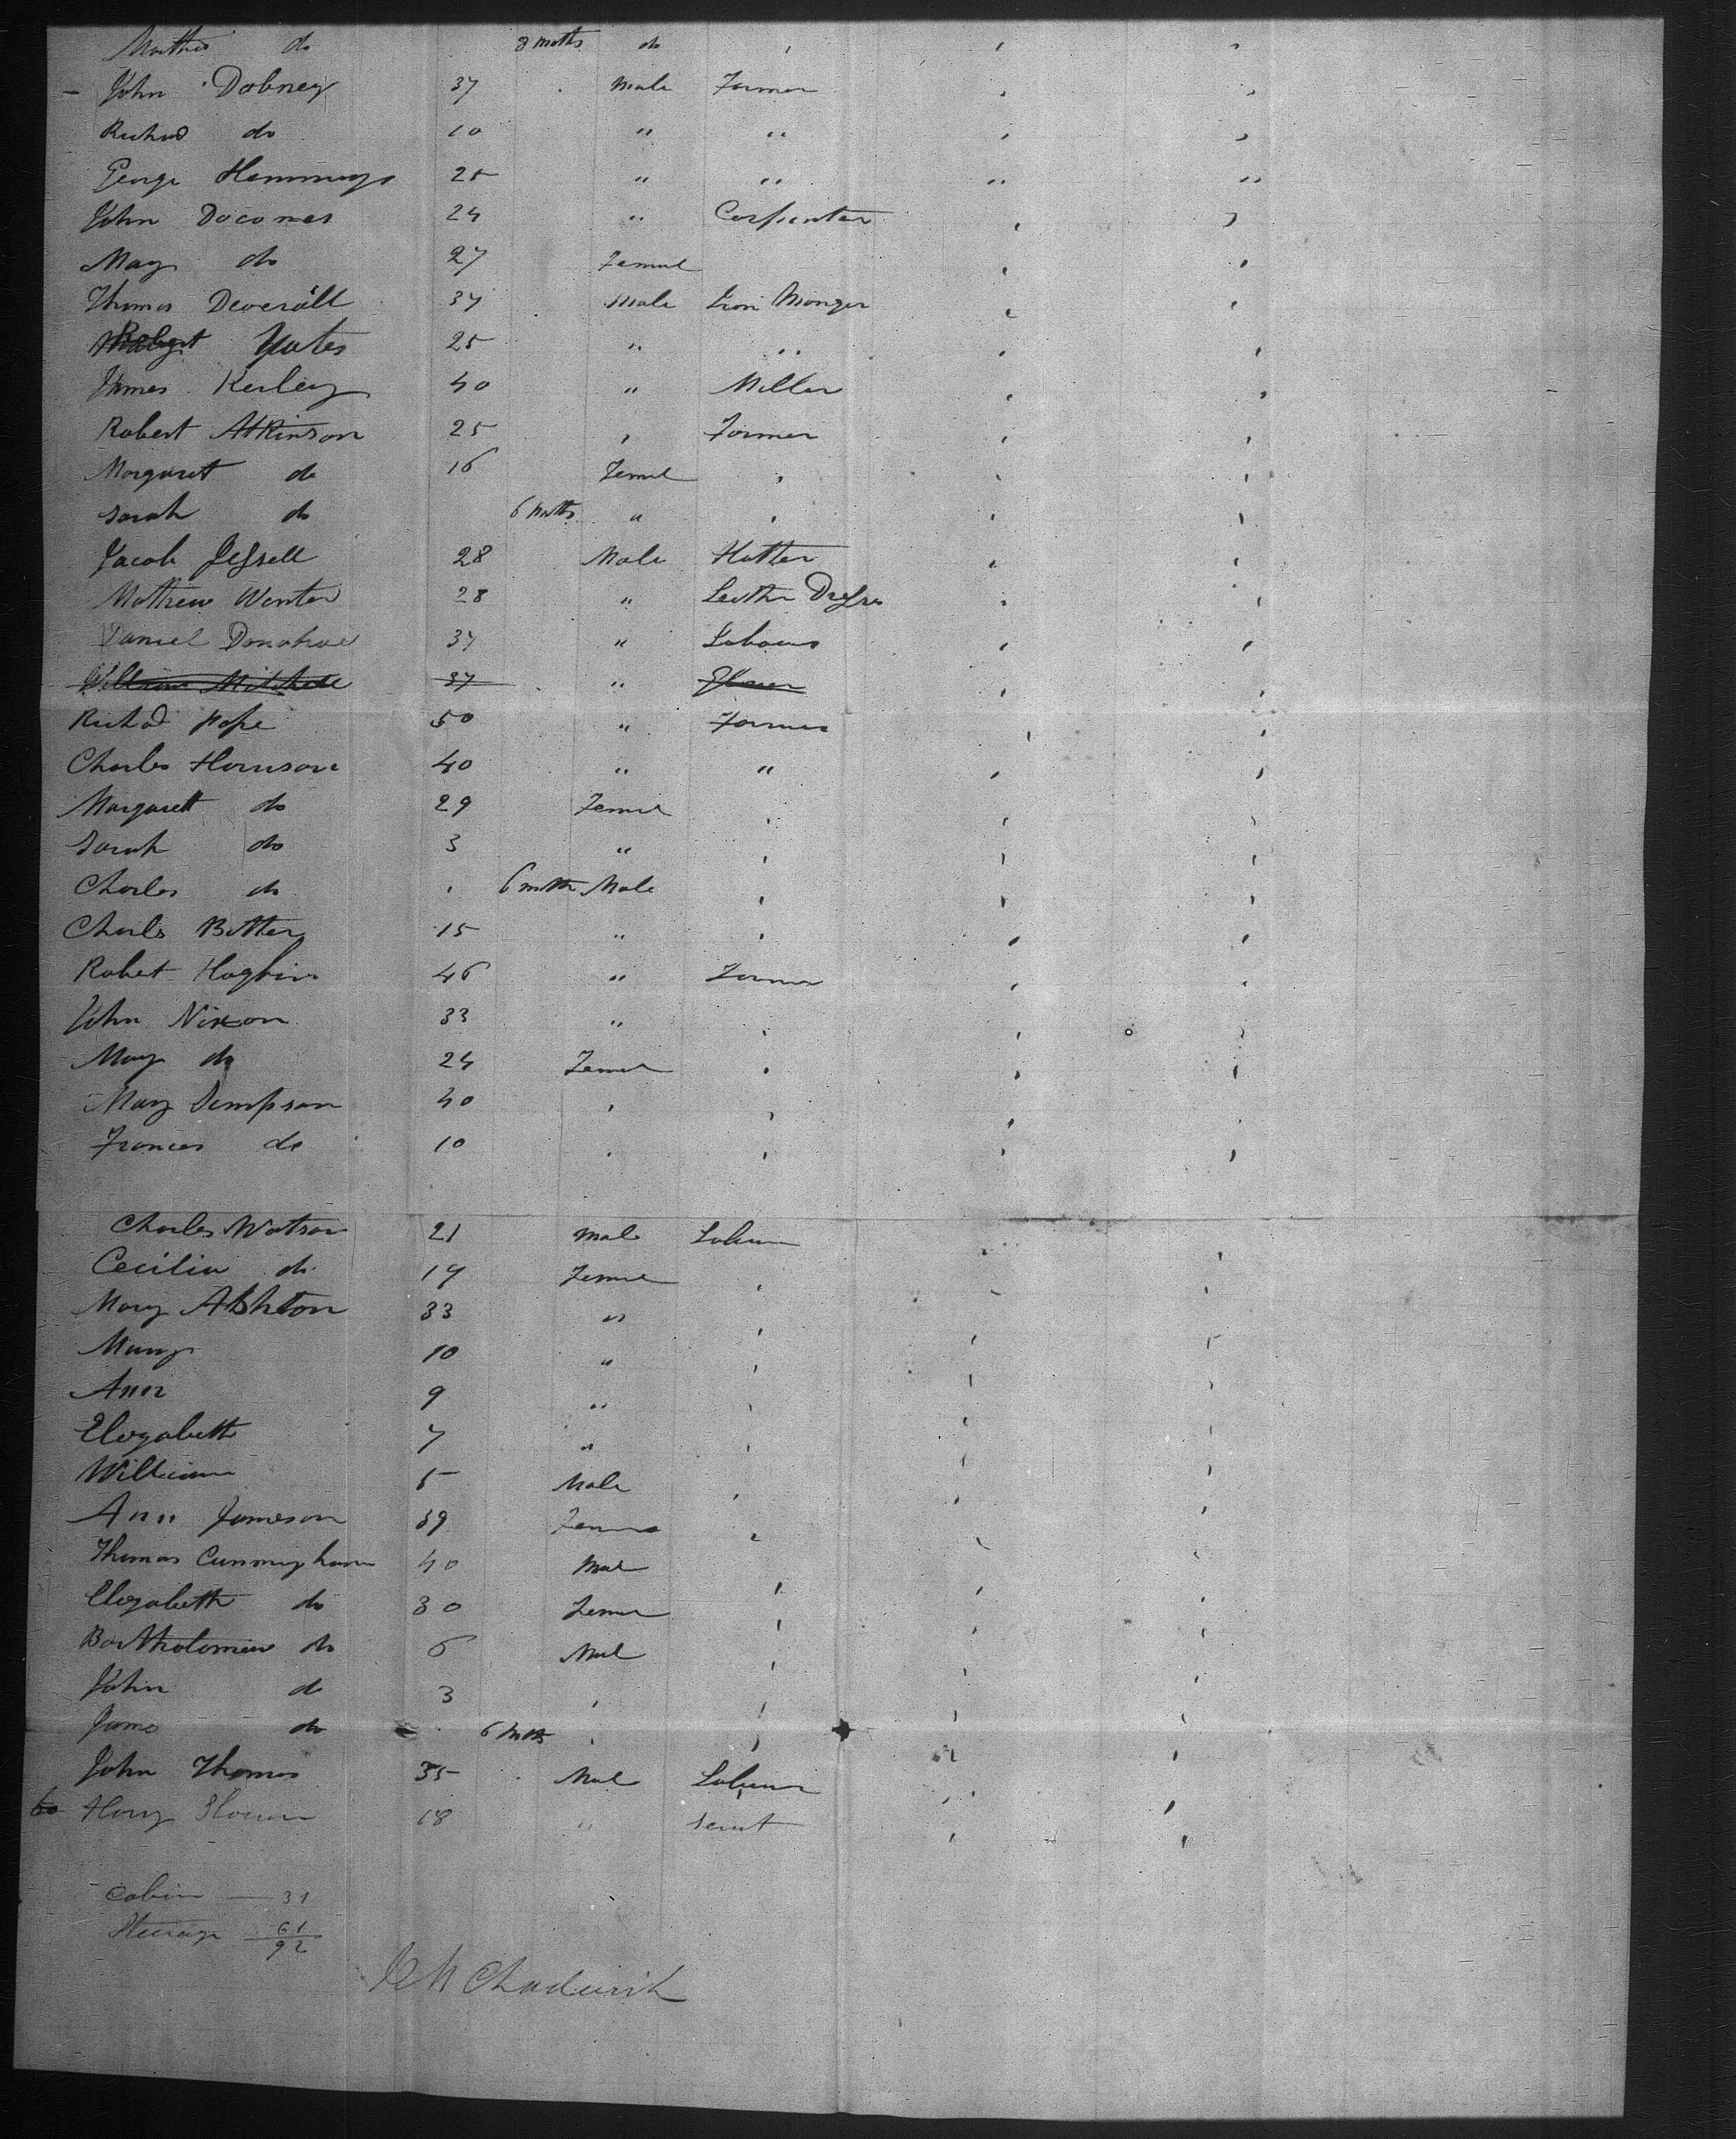 Martha do 8 moths do
John Dobney 37 Male Farmer
Richad do 10 " "
George Hemmings 25 " " " "
John Docomes 24 " Carpenter
Mary do 27 Femal
Thomas Deverall 37 Male Iron Monger
Robert Yates 25 " "
James Kerley 40 " Miller
Robert Atkinson 25 Farmer
Margaret do 16 Femal
Sarah do 6 moths "
Jacob Jessell 28 Male Hatter
Mathew Winter 28 " Leather Dresser
Daniel Donahue 37 " Labour
William Mitchell 37 "
Richad Pope 50 " Farmer
Charles Harrison 40 " "
Margarett do 29 Femal
Sarah do 3 "
Charles do 6 moths Male
Charls Butter 15 "
Robet Hogbin 46 " Farmer
John Nixon 33 "
Mary do 24 Femal
Mary Simpson 40
Frances do 10
Charles Watson 21 Male Labour
Cecilia do 19 Femal
Mary Ashton 33 "
Mary 10 "
Ann 9 "
Elizabeth 7 "
William 5 Male
Ann Jameson 39 Femal
Thomas Cunningham 40 Mal
Elizabeth do 30 Femal
Bartholomew do 6 Mal
John do 3
James do 6 mths
John Thomas 35 Mal Labour
60 Hary 18 " Servt
Cabin — 31
Steerage — 61
92
Chadwick